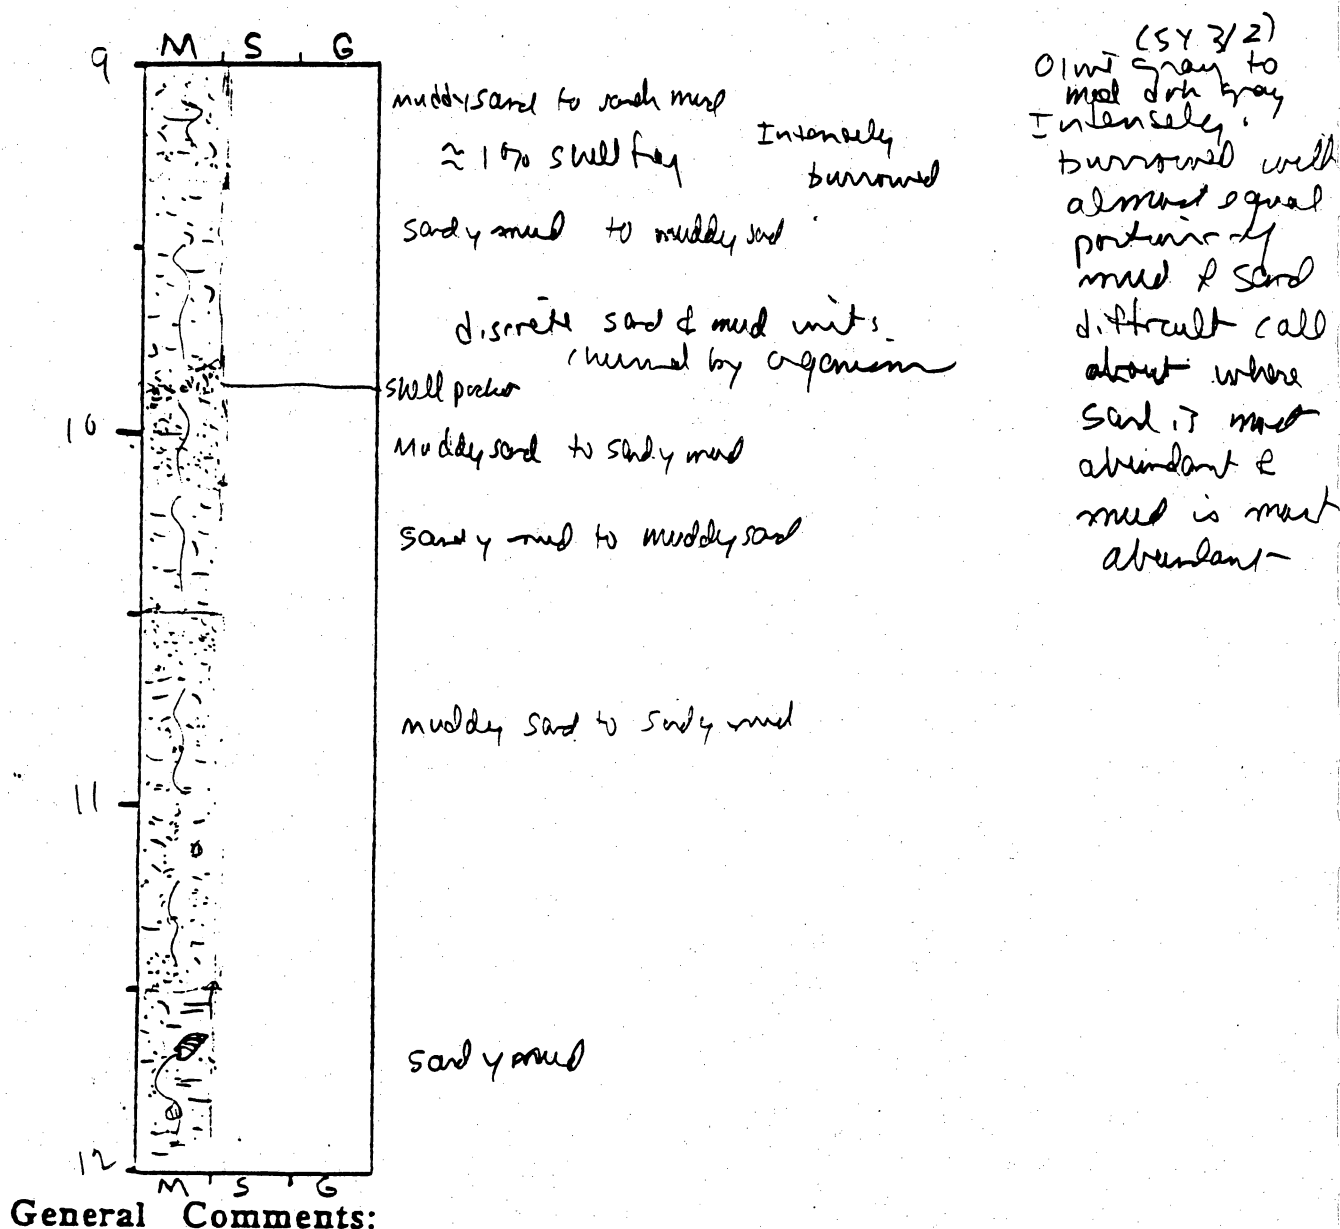 M S G
9
muddy sand to sandy mud
≈ 1% shell frag
Intensely
burrowed
sandy mud to muddy sand
discrete sand & mud units
churned by organism
shell pocket
10
Muddy sand to sandy mud
sandy mud to muddy sand
muddy sand to sandy mud
11
sandy mud
12
M S G
General Comments:
(5Y 3/2)
Olive gray to
med drk gray
Intensely
burrowed with
almost equal
portions of
mud & sand
difficult call
about where
sand is most
abundant &
mud is most
abundant